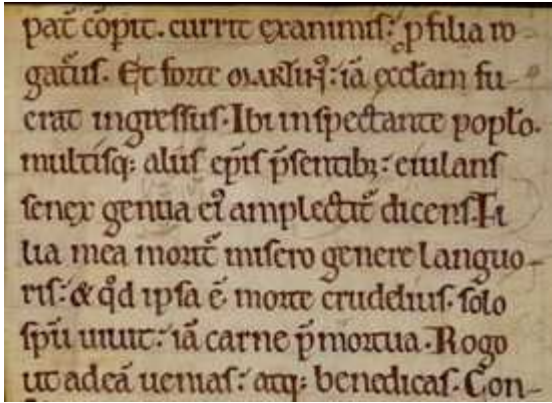 pat̄ cōpit. currit exanimis: ꝓ filia ro
gat̄us. Et forte MARTIN᷒: iā ecc̄lam fu-
erat ingressus. Ibi inspectante popl̄o.
multisq: aliis ep̄is p̄sentib;: eiulans
senex genua ei᷒ amplectit̄ dicens. Fi
lia mea morit̄ misero genere languo-
ris: & qd̄ ipsa ē morte crudelius: solo
sp̄u uiuit: iā carne p̄mortua. Rogo
ut ad eā uenias: atq: benedicas. Con-